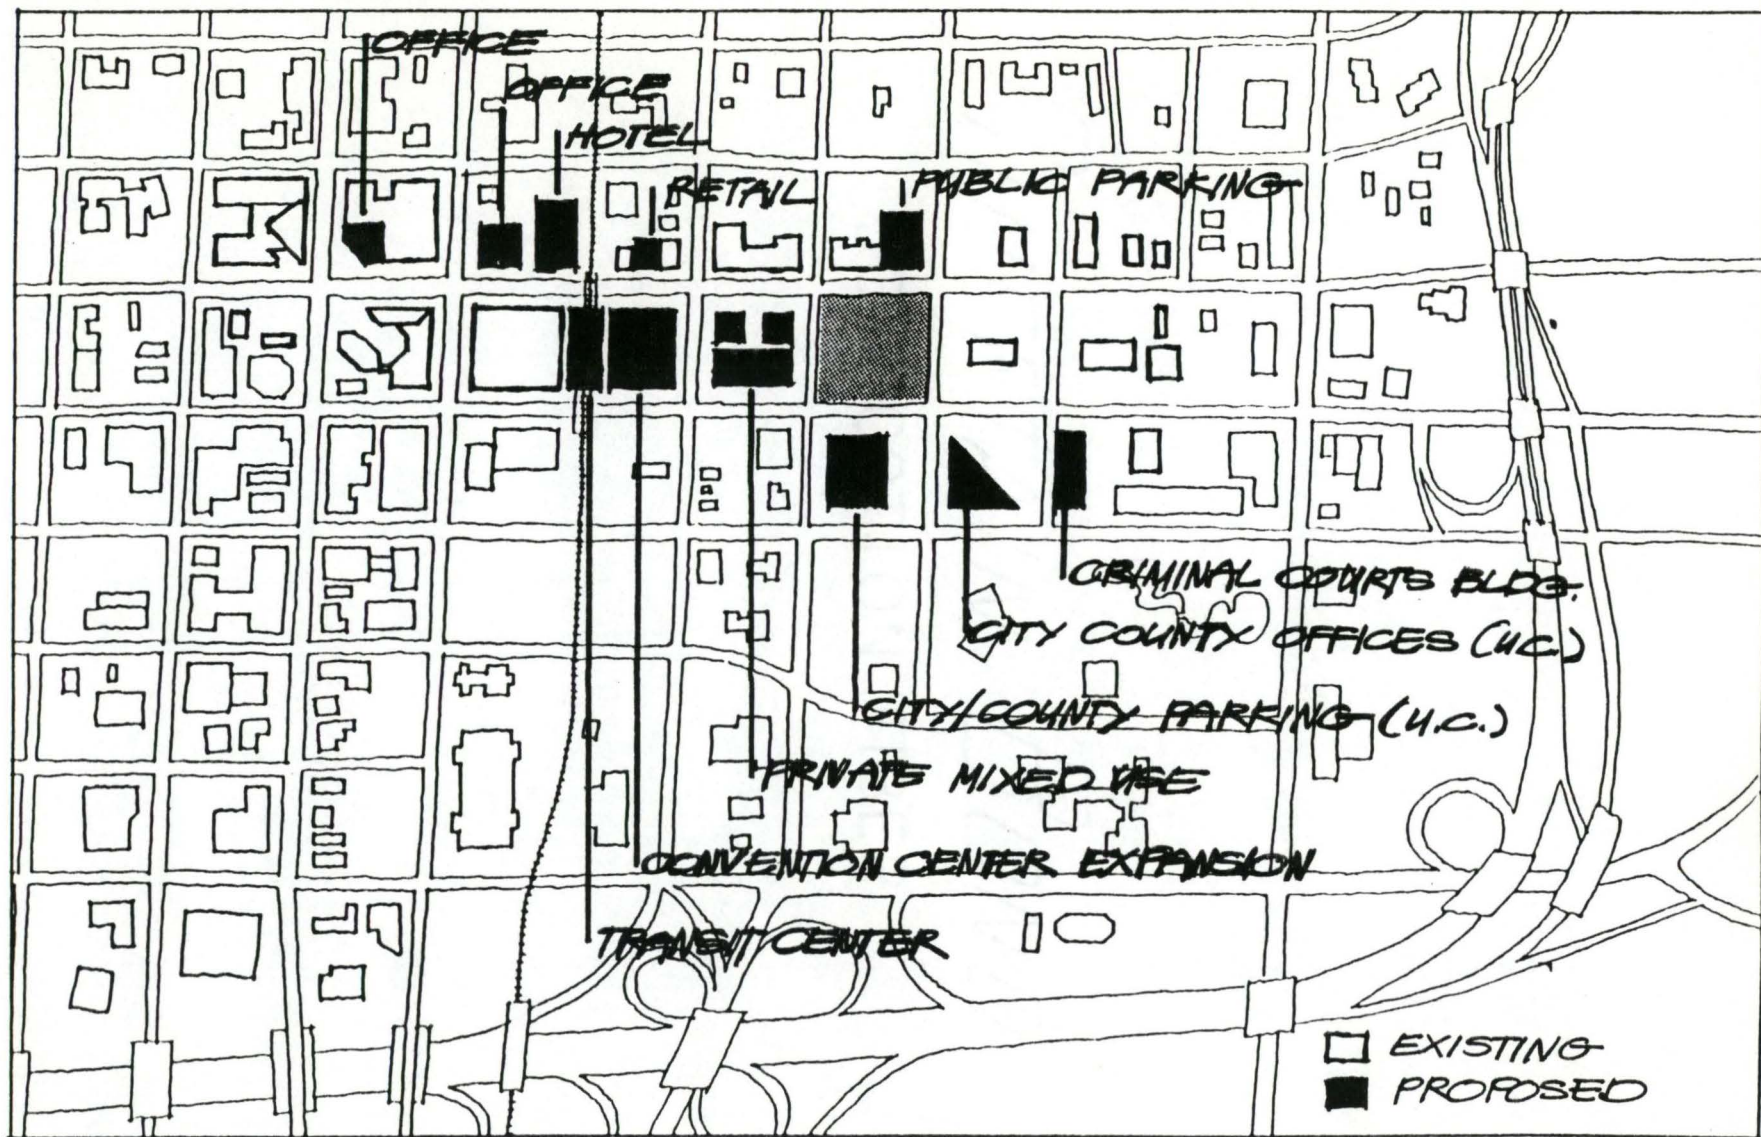 OFFICE
OFFICE
HOTEL
RETAIL
PUBLIC PARKING
CRIMINAL COURTS BLDG.
CITY COUNTY OFFICES (U.C.)
CITY/COUNTY PARKING (U.C.)
PRIVATE MIXED USE
CONVENTION CENTER EXPANSION
TRANSIT CENTER
EXISTING
PROPOSED